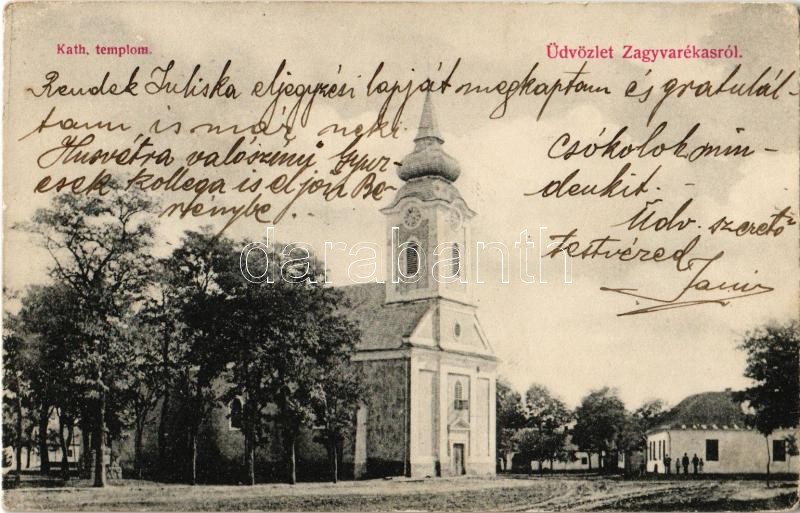 Kath. templom.
Üdvözlet Zagyvarékasról.
Rendek Juliska eljegyzési lapját megkaptam és gratulál-
tam, is már neki
Husvétra valószinü Gyur-
csek kollega is eljön Be-
rénybe..
Csókolok min-
denkit. –
Üdv. szerető
testvéred
Jani
darabanth